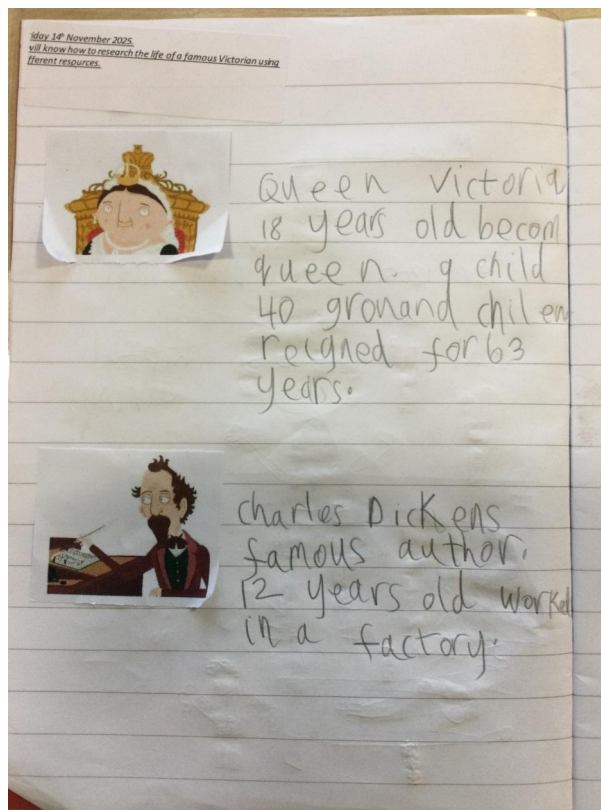 iday 14th November 2025.
vill know how to research the life of a famous Victorian using
fferent resources.
Queen Victoria
18 years old becom
queen. 9 child
40 gronand chilen
reigned for 63
years.
Charles Dickens
famous author.
12 years old worked
in a factory.